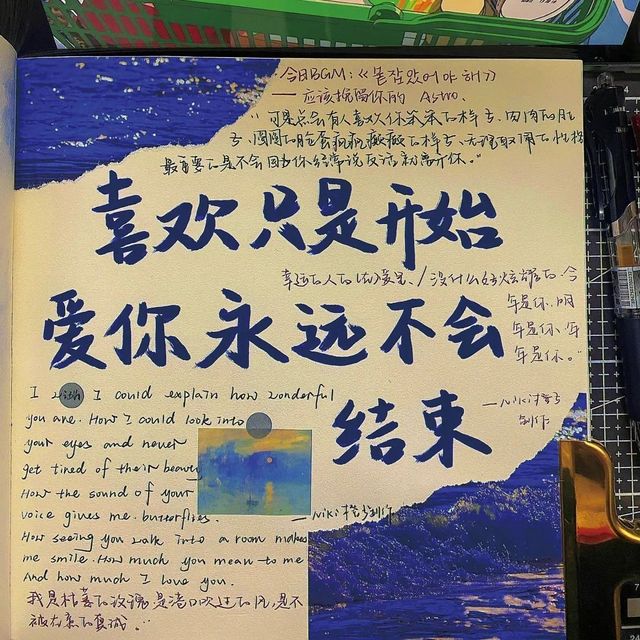 今日BGM:《붙잡았어야 해》
——应该挽留你的 Astro.
"可是总会有人喜欢你笨笨的样子、肉肉的肚
子、圆圆的脸蛋疯疯癫癫的样子、无理取闹的性格
最重要的是不会因为你经常说反话就离开你。"
喜欢只是开始
幸运的人的
没什么好炫耀的、今
年是你、明
年是你、年
年是你。"
爱你永远不会
结束
——Niki
制作
I wish I could explain how wonderful
you are. How I could look into
your eyes and never
get tired of their beauty
How the sound of your
voice gives me butterflies.
——Niki
How seeing you walk into a room makes
me smile. How much you mean to me
And how much I love you.
我是枯萎的玫瑰,是渚口吹过的风,是不
被在意的真诚。"